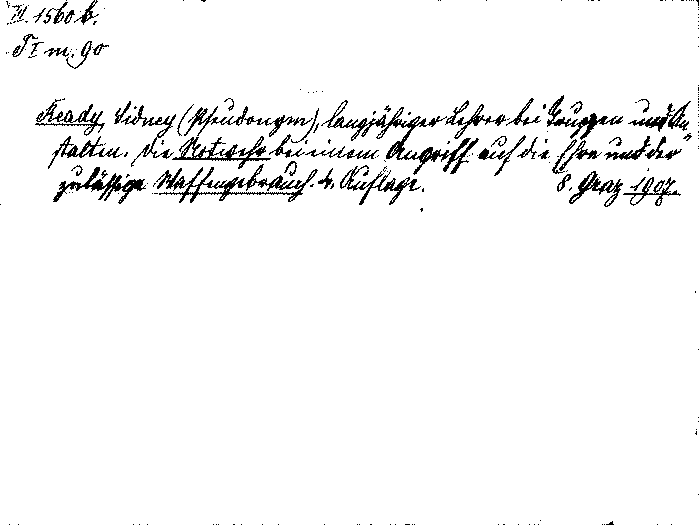 II. 1560 b.
T I m. 90
Ready, Sidney (Pseudonym), langjähriger Lehrer bei Truppen und An-
stalten. Die Notwehr bei einem Angriff auf die Ehre und der
zulässige Waffengebrauch. 4. Auflage. 8. Graz 1907.